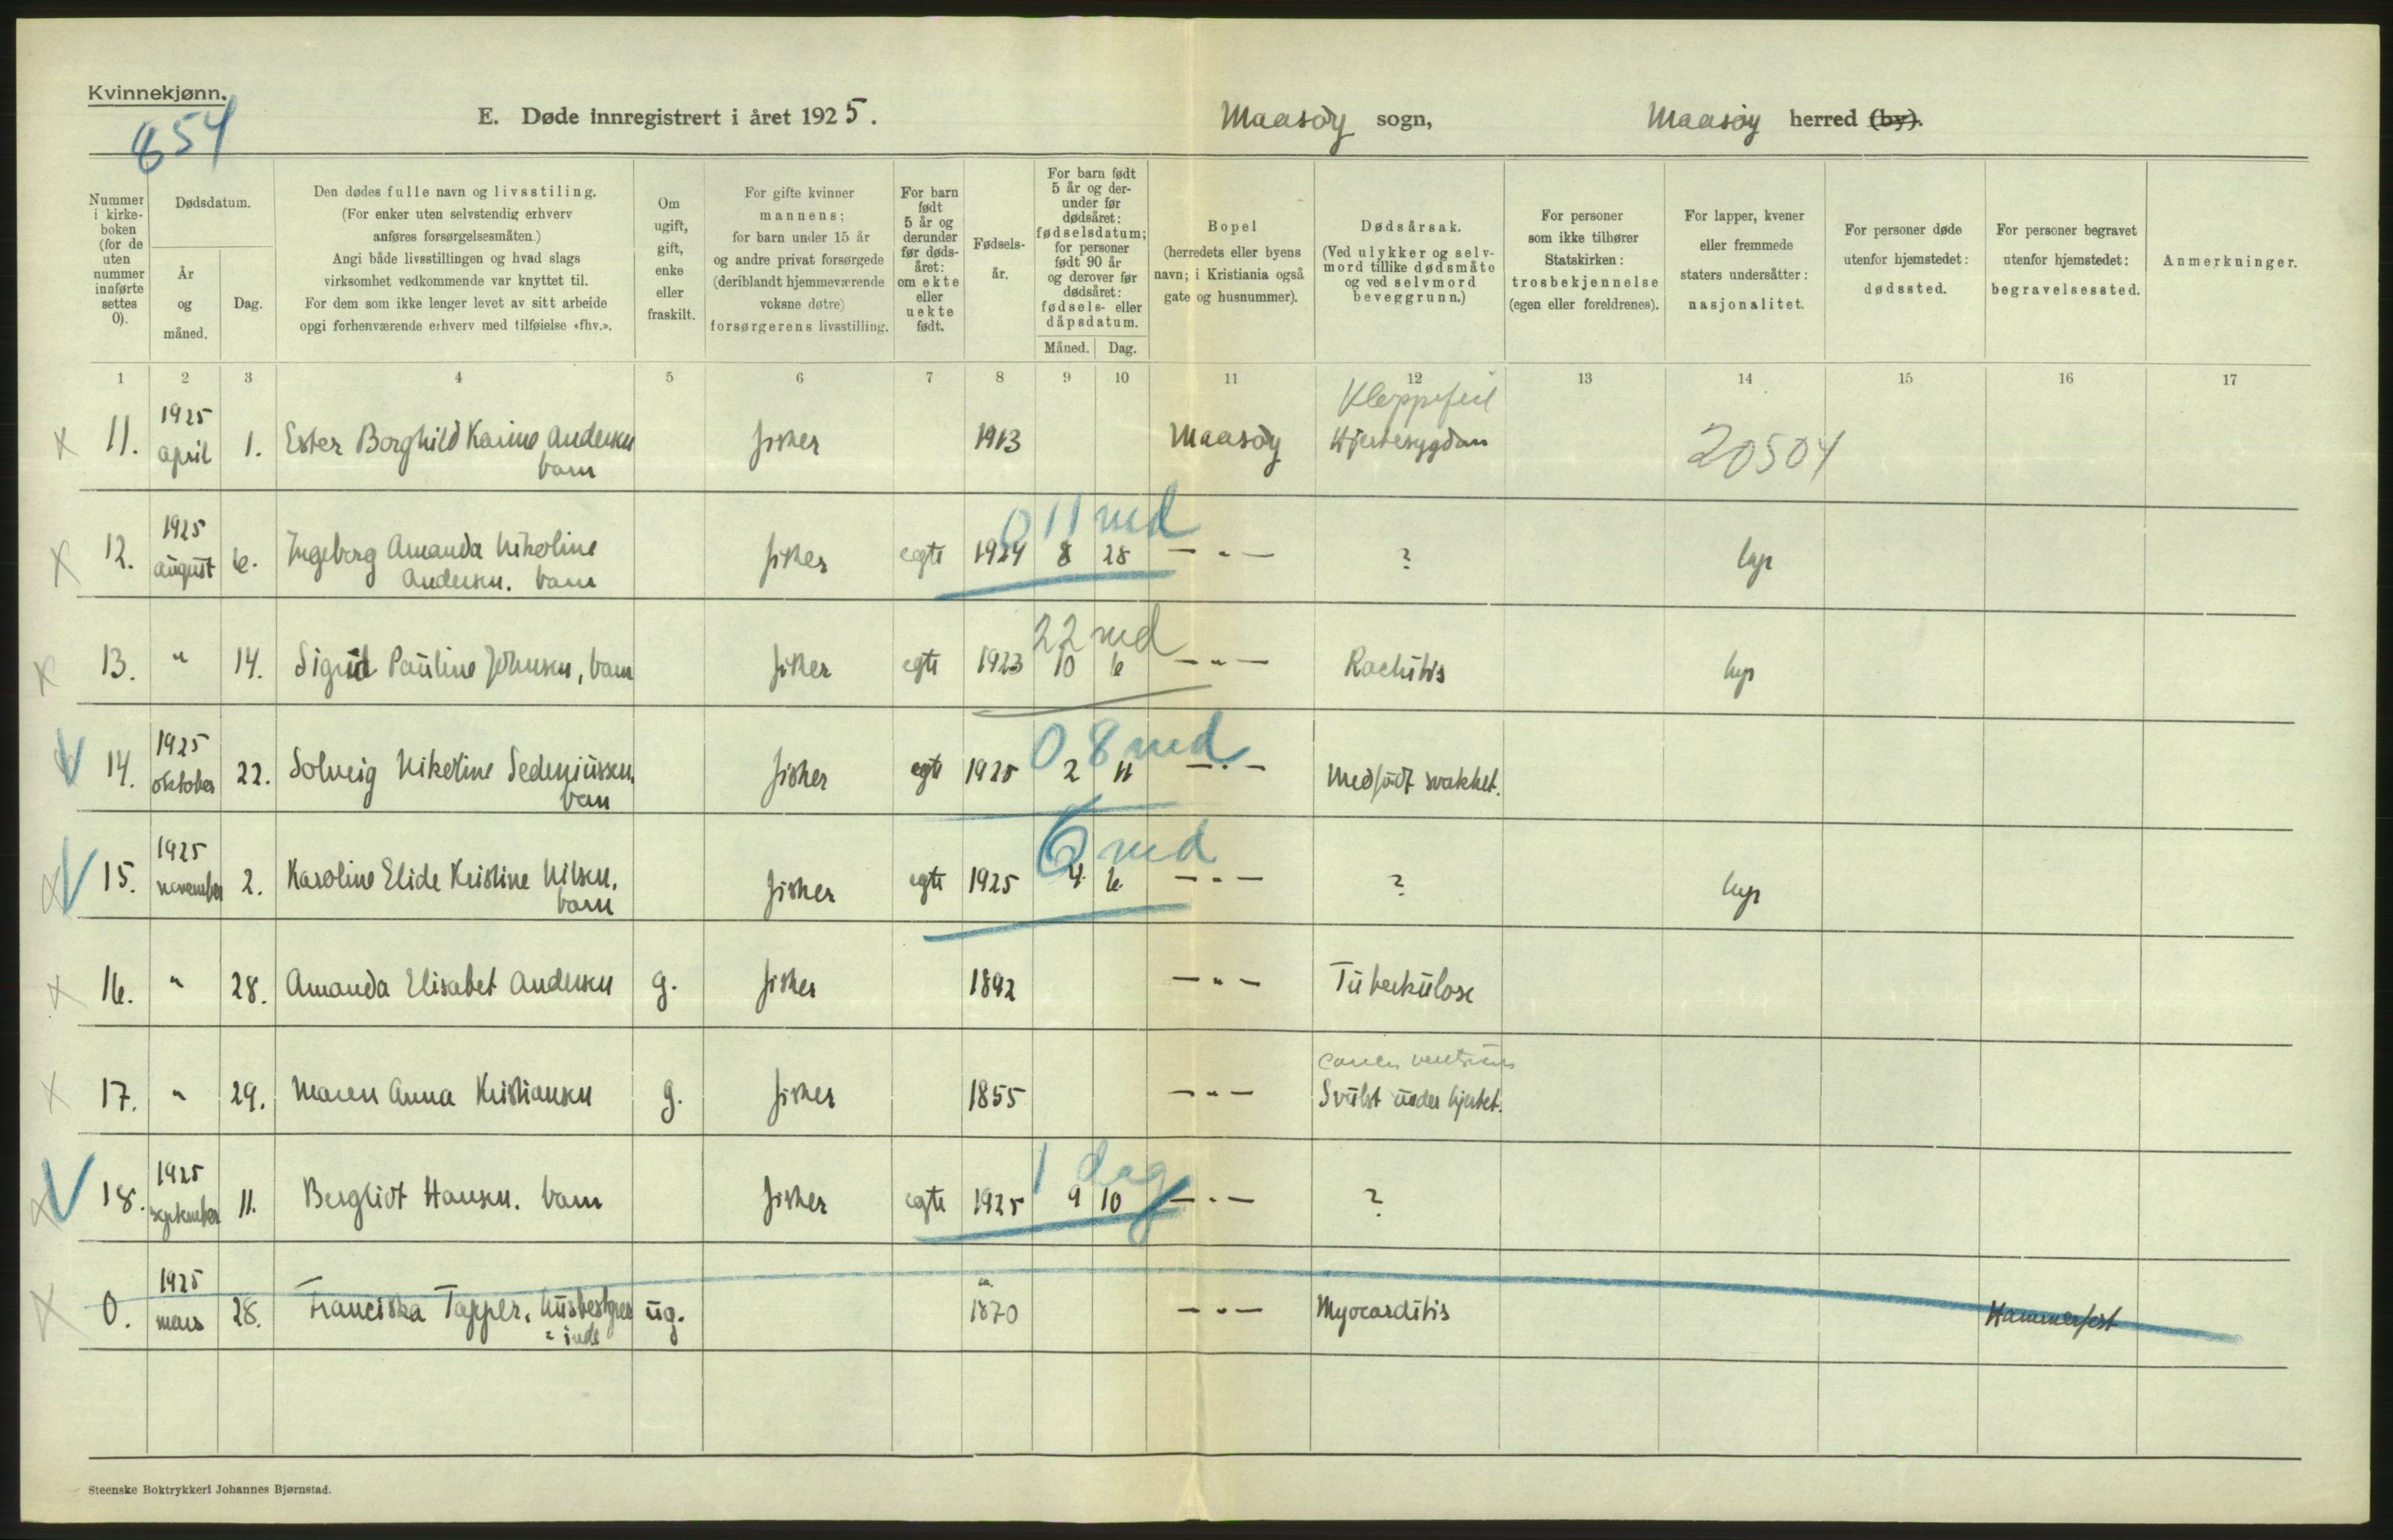 Kvinnekjønn.
854
E. Døde innregistrert i året 1925. Maasöy sogn, Maasöy herred (by).
Nummer i kirke- boken (for de uten nummer innførte settes 0).
Dødsdatum.
År og måned.
Dag.
Den dødes fulle navn og livsstiling.
(For enker uten selvstendig erhverv
anføres forsørgelsesmåten.)
Angi både livsstillingen og hvad slags
virksomhet vedkommende var knyttet til.
For dem som ikke lenger levet av sitt arbeide
opgi forhenværende erhverv med tilføielse «fhv.».
Om
ugift,
gift,
enke
eller
fraskilt.
For gifte kvinner
mannens;
for barn under 15 år
og andre privat forsørgede
(deriblandt hjemmeværende
voksne døtre)
forsørgerens livsstilling.
For barn
født
5 år og
derunder
før døds-
året:
om ekte
eller
uekte
født.
Fødsels-
år.
For barn født
5 år og der-
under før
dødsåret:
fødselsdatum;
for personer
født 90 år
og derover før
dødsåret:
fødsels- eller
dåpsdatum.
Måned. Dag.
Bopel
(herredets eller byens
navn; i Kristiania også
gate og husnummer).
Dødsårsak.
(Ved ulykker og selv-
mord tillike dødsmåte
og ved selvmord
beveggrunn.)
For personer
som ikke tilhører
Statskirken:
trosbekjennelse
(egen eller foreldrenes).
For lapper, kvener
eller fremmede
staters undersåtter:
nasjonalitet.
For personer døde
utenfor hjemstedet:
dødssted.
For personer begravet
utenfor hjemstedet:
begravelsessted.
Anmerkninger.
1 2 3 4 5 6 7 8 9 10 11 12 13 14 15 16 17
Kleppefeil
x 11. 1925 april 1. Ester Borghild Karine Andersen fisker 1913 Maasöy Hjertesygdom 20504
barn
0 11 md
x 12. 1925 august 6. Ingeborg Amanda Nikoline fisker egte 1924 8 28 — " — ? lap
Andersen. barn
22 md
x 13. " 14. Sigrid Pauline Johnsen, barn fisker egte 1923 10 6 — " — Rachitis lap
0 8 md
V 14. 1925 oktober 22. Solveig Nikoline Sedeniussen, fisker egte 1925 2 11 — " — Medfödt svakhet.
barn
6 md
V 15. 1925 november 2. Karoline Elide Kristine Nilsen, fisker egte 1925 4 6 — " — ? lap
barn
x 16. " 28. Amanda Elisabet Andersen g. fisker 1892 — " — Tüberkülose
x 17. " 29. Maren Anna Kristiansen g. fisker 1855 — " — Svülst ünder hjertet.
1 dag
V 18. 1925 september 11. Bergliot Hansen. barn fisker egte 1925 9 10 — " — ?
x 0. 1925 mars 28. Franciska Tapper, hüsbestyrer üg. 1870 — " — Myocarditis Hammerfest
= inde
Steenske Boktrykkeri Johannes Bjørnstad.